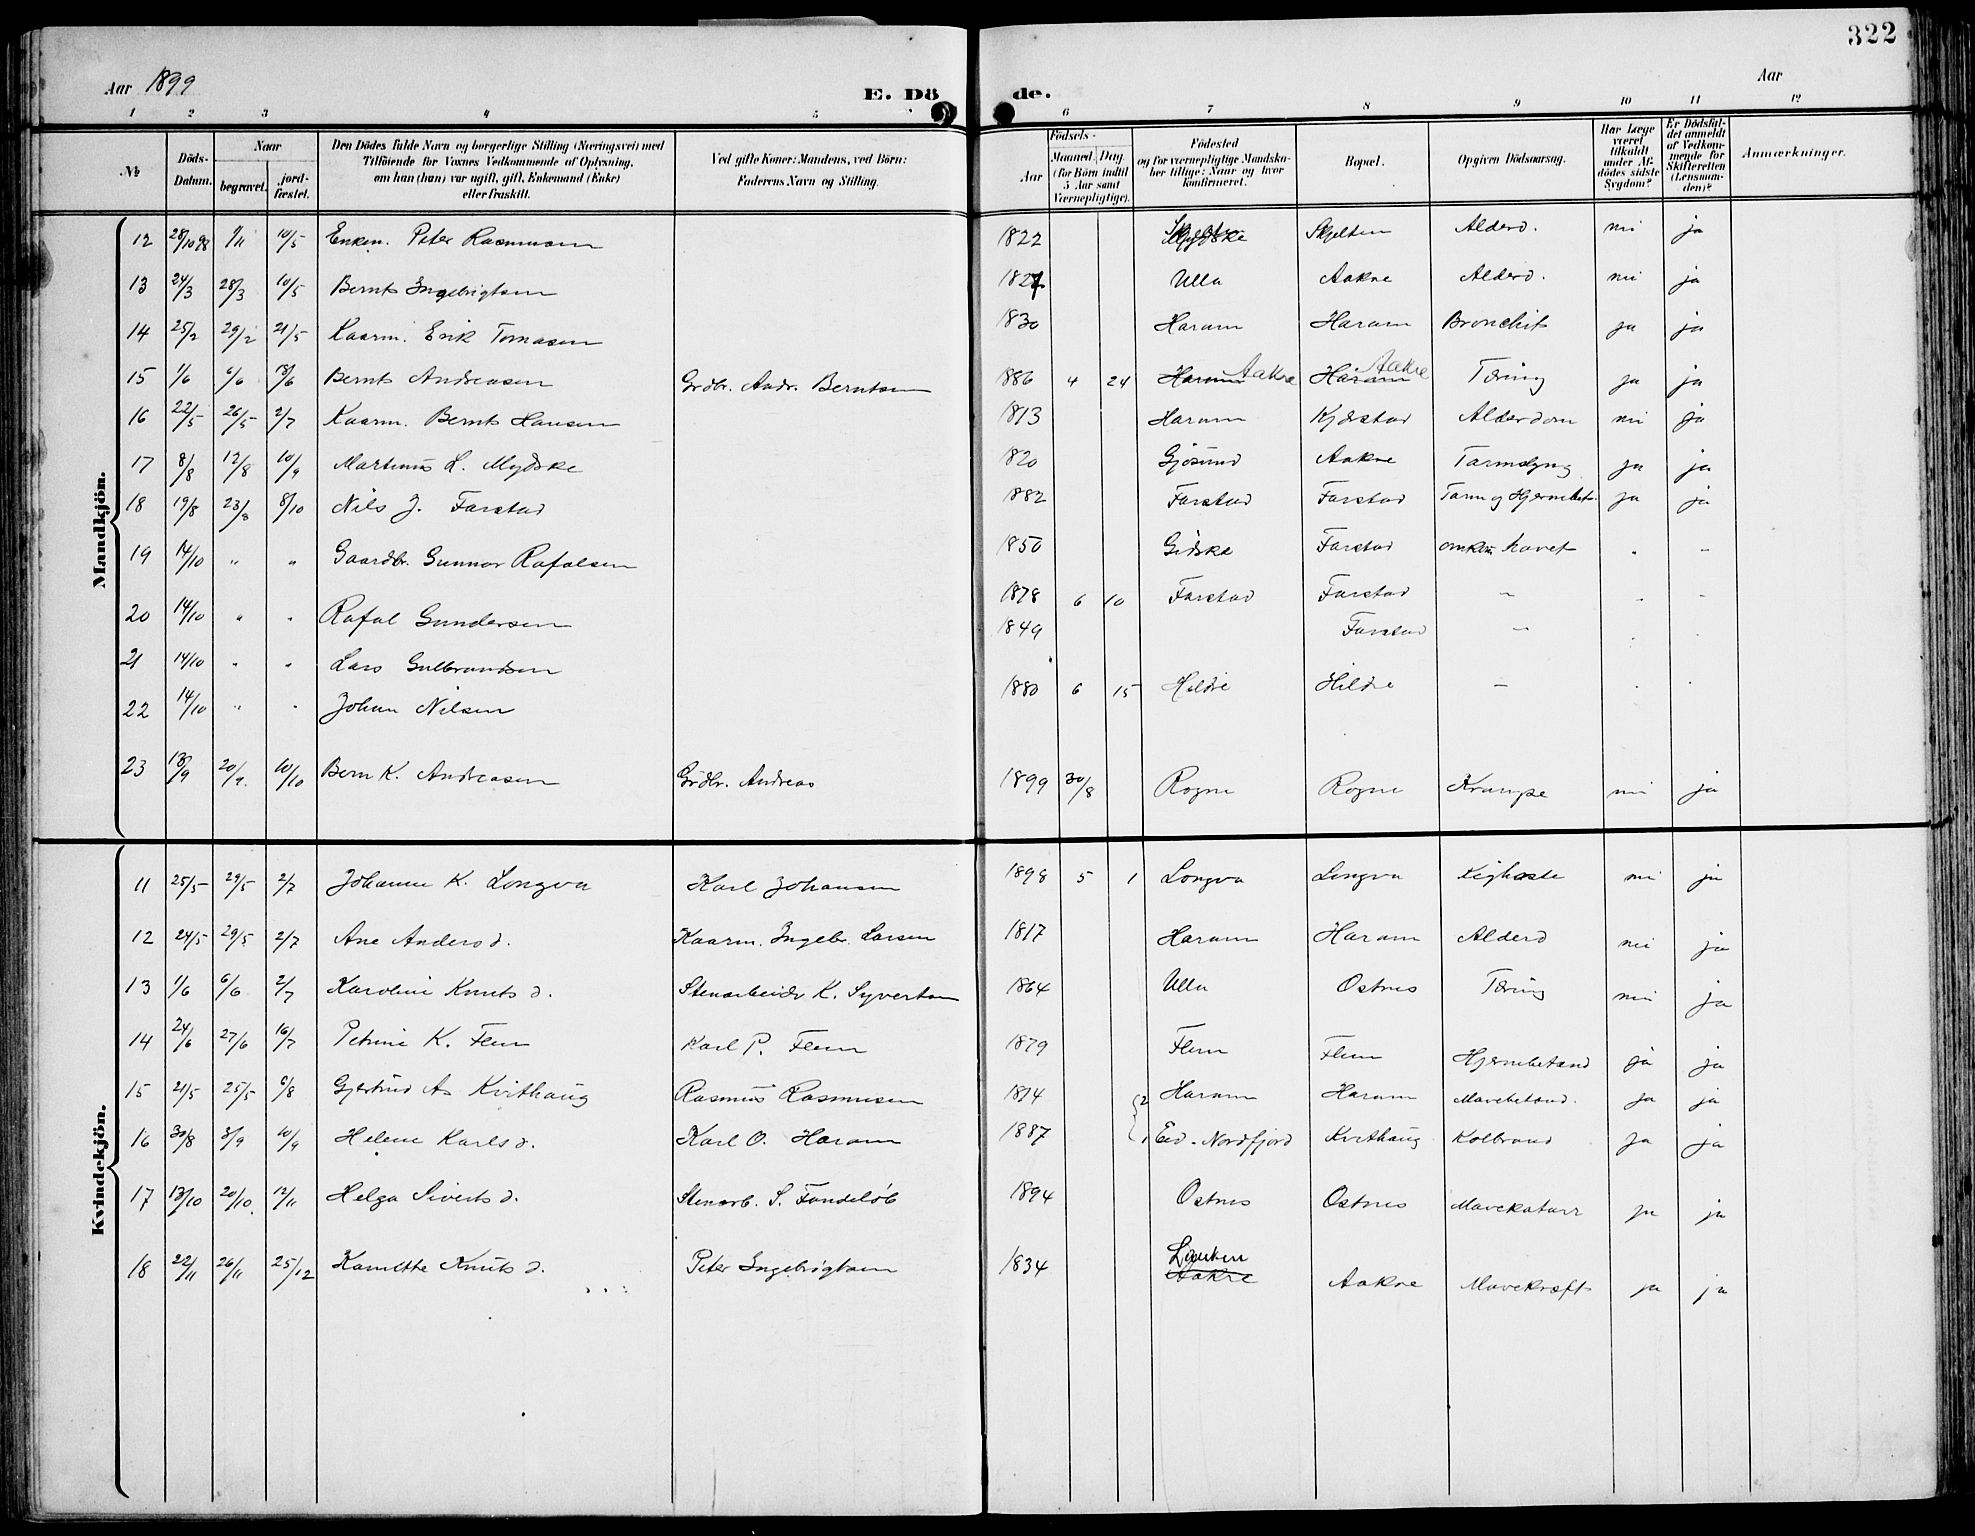 322
Aar 1899
E. Dö
de.
Aar
1 2 3 4 5
6 7 8 9 10 11 12
№
Döds-Datum.
Naar
begravet.
jord-fæstet.
Den Dödes fulde Navn og borgerlige Stilling (Næringsvei) med
Tilföiende for Voxnes Vedkommende af Oplysning,
om han (hun) var ugift, gift, Enkemand (Enke)
eller fraskilt.
Ved gifte Koner: Mandens, ved Börn:
Faderens Navn og Stilling.
Födsels-
Aar
Maaned. Dag
(for Börn indtil
5 Aar samt
Værnepligtige).
Födested
og for værnepligtige Mandska-
ber tillige: Naar og hvor
konfirmeret.
Bopæl.
Opgiven Dödsaarsag.
Har Læge
været
tilkaldt
under Af-
dödes sidste
Sygdom?
Er Dödsfal-
det anmeldt
af Vedkom-
mende for
Skifteretten
(Lensman-
den)?
Anmærkninger.
Mandkjön.
12 28/10 98 1/11 10/5 Enkem. Peter Rasmusen 1822 Skjelten Alderd. nei ja
13 24/3 28/3 10/5 Bernt Ingebrigtsen 1827 Ulla Aakre Alderd. nei ja
14 25/2 29/2 21/5 Kaarm. Erik Tomasen 1830 Haram Haram Bronchit ja ja
15 1/6 6/6 18/6 Bernt Andreasen Grdbr. Andr. Berntsen 1886 4 24 Haram Aakre Haram Aakre Tæring ja ja
16 22/5 26/5 2/7 Kaarm. Bernt Hansen 1813 Haram Kjerstad Alderdom nei ja
17 8/8 12/8 10/9 Martinus L. Mydske 1820 Gjøsund Aakre Tarmslyng ja ja
18 19/8 23/8 8/10 Nils J. Farstad 1882 Farstad Farstad Tarm og Hjernebet. ja ja
19 14/10 " " Gaardbr. Gunnar Rafalsen 1850 Gidske Farstad omkom havet " "
20 14/10 " " Rafal Gundersen 1878 6 10 Farstad Farstad " " "
21 14/10 " " Lars Gulbrandsen 1849 Farstad " " "
22 14/10 " " Johan Nilsen 1880 6 15 Hildre Hildre " " "
23 18/9 20/9 10/10 Bern K. Andreasen Grdbr. Andreas 1899 30/8 Rogne Rogne Krampe nei ja
Kvindekjön.
11 25/5 29/5 2/7 Johanne K. Longva Karl Johansen 1898 5 1 Longva Longva Kighoste nei ja
12 24/5 29/5 2/7 Ane Anders d. Kaarm. Ingebr. Larsen 1817 Haram Haram Alderd nei ja
13 1/6 6/6 2/7 Karoline Knuts d. Stenarbeider K. Syvertsen 1864 Ulla Ostnes Tæring nei ja
14 24/6 27/6 16/7 Petrine K. Flem Karl P. Flem 1879 Flem Flem Hjernebetænd ja ja
15 21/5 25/5 6/8 Gjertrud A. Kvithaug Rasmus Rasmusen 1814 2 Haram Haram Mavebetænd. ja ja
16 30/8 3/9 10/9 Helene Karls d. Karl O. Haram 1887 1 Eid - Nordfjord Kvithaug Kolbrand ja ja
17 13/10 20/10 12/11 Helga Siverts d. Stenarb. S. Fandeløb 1894 Ostnes Ostnes Mavekatarr ja ja
18 22/11 26/11 25/12 Kanutte Knuts d. Peter Ingebrigtsen 1834 Aakre Aakre Mavekræft ja ja